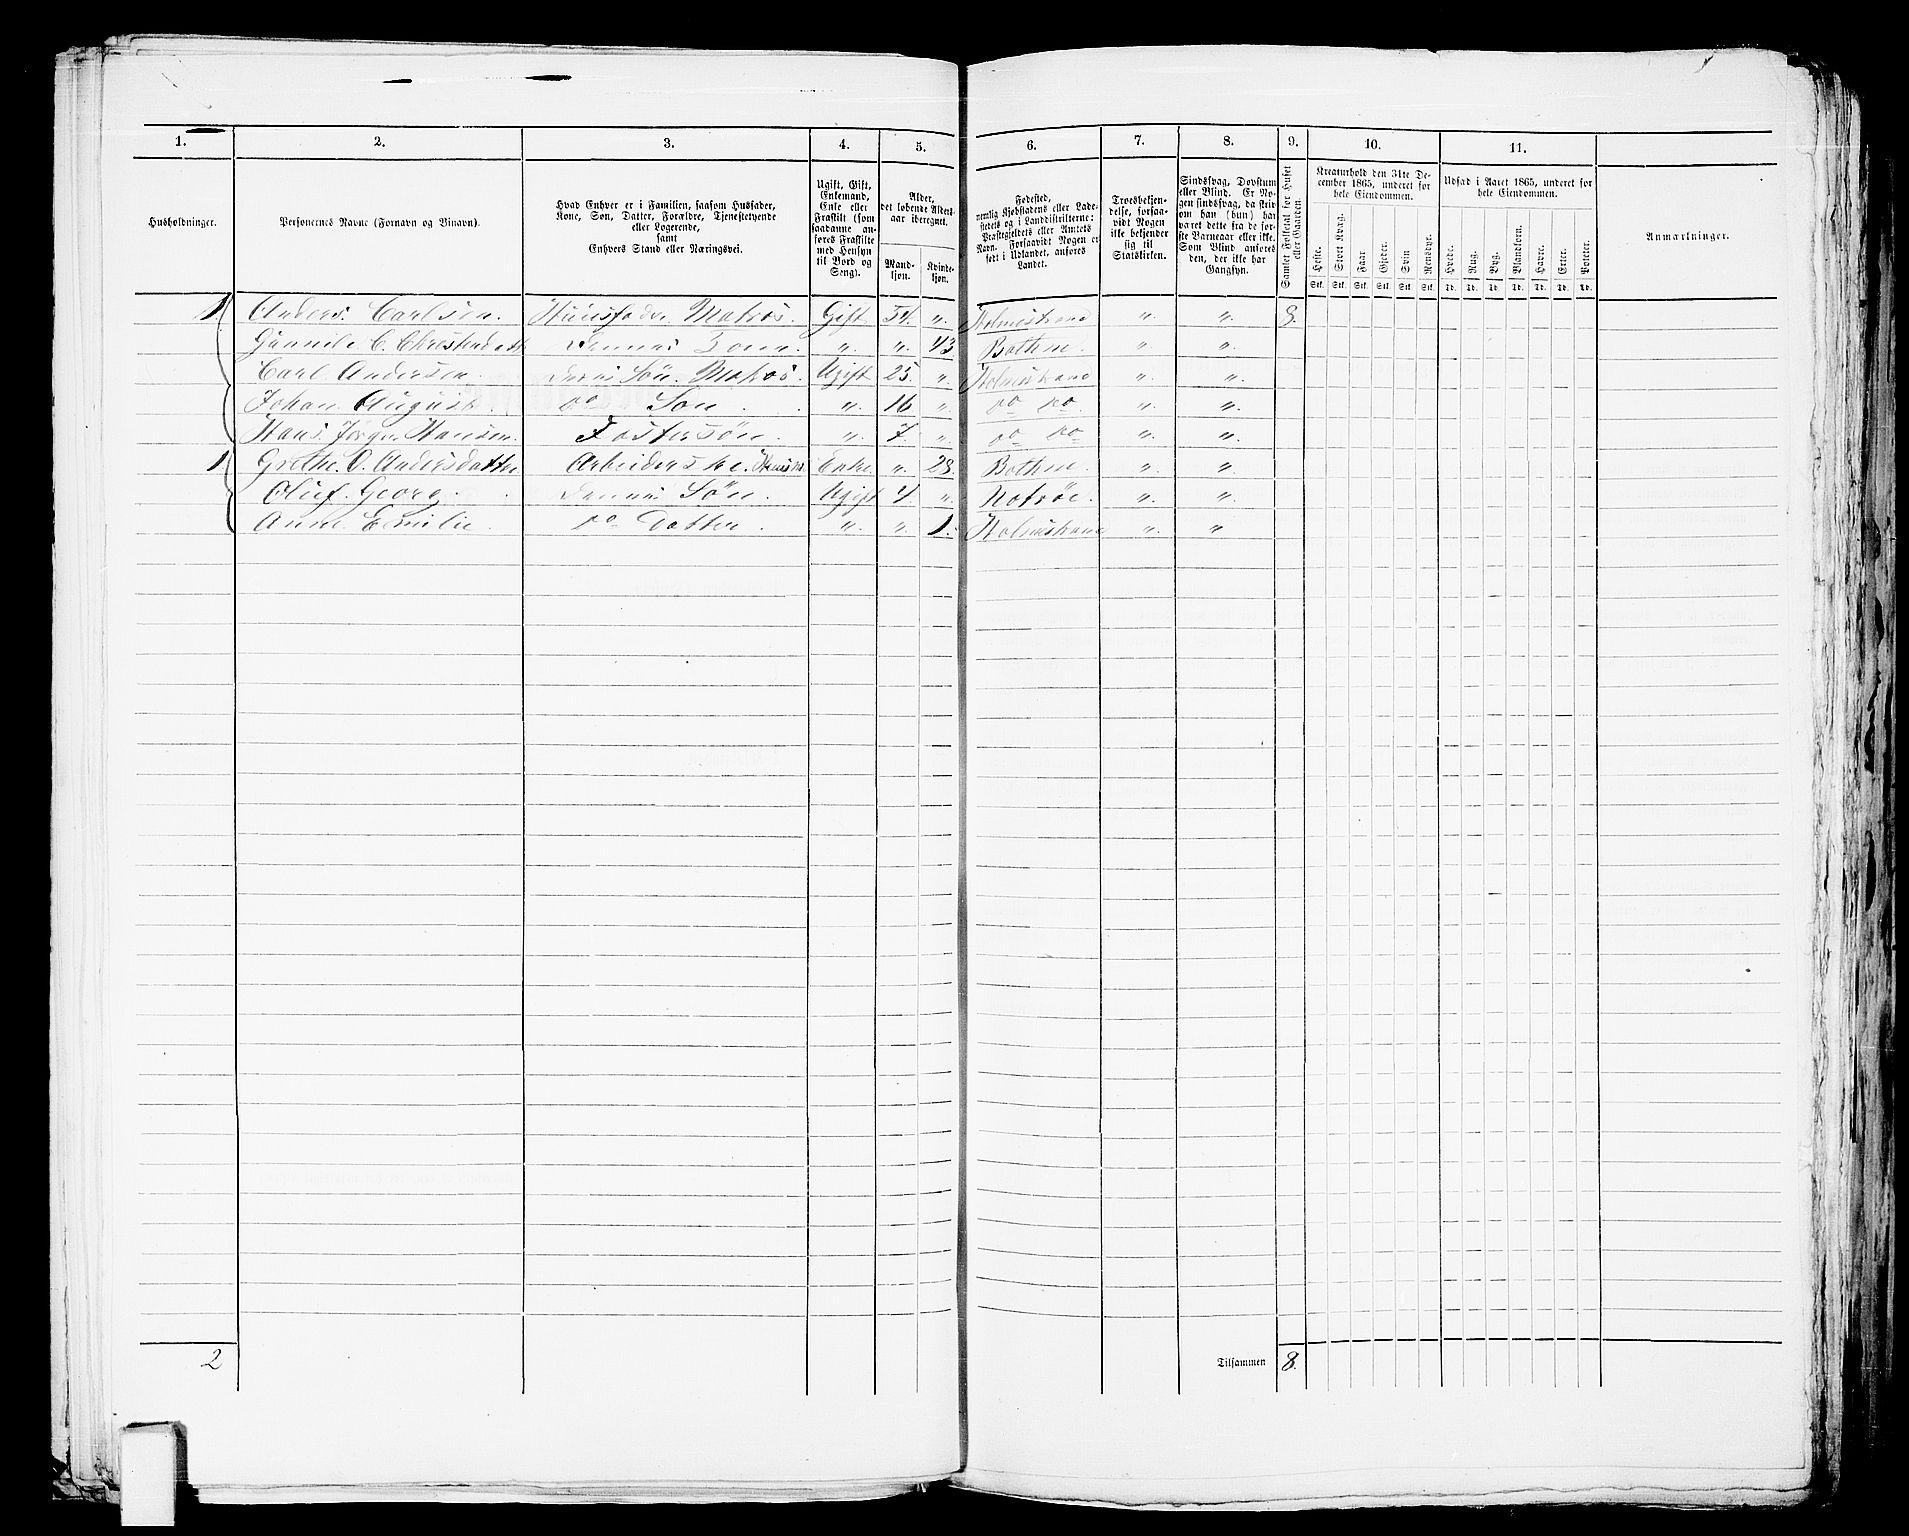 1. 2. 3. 4. 5. 6. 7. 8. 9. 10. 11.
Husholdninger.
Personernes Navne (Fornavn og Binavn).
Hvad Enhver er i Familien, saasom Husfader,
Kone, Søn, Datter, Forældre, Tjenestetyende
eller Logerende,
samt
Enhvers Stand eller Næringsvei.
Ugift, Gift,
Enkemand,
Enke eller
Fraskilt (som
saadanne an-
føres Fraskilte
med Hensyn
til Bord og
Seng).
Alder,
det løbende Alders-
aar iberegnet.
Mand-
kjøn.
Kvinde-
kjøn.
Fødested,
nemlig Kjøbstadens eller Lade-
stedets og i Landdistrikterne:
Præstegjeldets eller Amtets
Navn. Forsaavidt Nogen er
født i Udlandet, anføres
Landet.
Troesbekjen-
delse, forsaa-
vidt Nogen
ikke bekjender
sig til
Statskirken.
Sindssvag, Døvstum
eller Blind. Er No-
gen sindssvag, da skrives
om han (hun) har
været dette fra de før-
ste Barneaar eller ikke.
Som Blind anføres
den, der ikke har
Gangsyn.
Samlet Folketal for Huset
eller Gaarden.
Kreaturhold den 31te De-
cember 1865, underet for
hele Eiendommen.
Heste. Stort Kvæg. Faar Gjeder. Svin Rensdyr.
Stk. Stk. Stk. Stk. Stk. Stk.
Udsæd i Aaret 1865, underet for
hele Eiendommen.
Hvede. Rug. Byg. Blandkorn. Havre. Erter. Poteter.
Td. Td. Td. Td. Td. Td. Td.
Anmærkninger.
1 Anders Carlsen. Huusfader Matros. Gift 54. " Holmestrand " " 8.
Gunnild C. Christensdatt Dennes Kone. " " 43 Bothne. " "
Carl Andersen. Deres Søn. Matros. Ugift 25. " Holmestrand " "
Johan August. do Søn " 16 " do do " "
Hans Jørgen Hansen. Fostersøn. " 7. " do do " "
1 Grethe O. Andersdatter Enke " 28. Bothne. " "
Oluf Georg. Dennes Søn. Ugift 4. " Notrøe. " "
Anne Emilie. do Datter. " " 1. Holmestrand " "
2 Tilsammen 8.